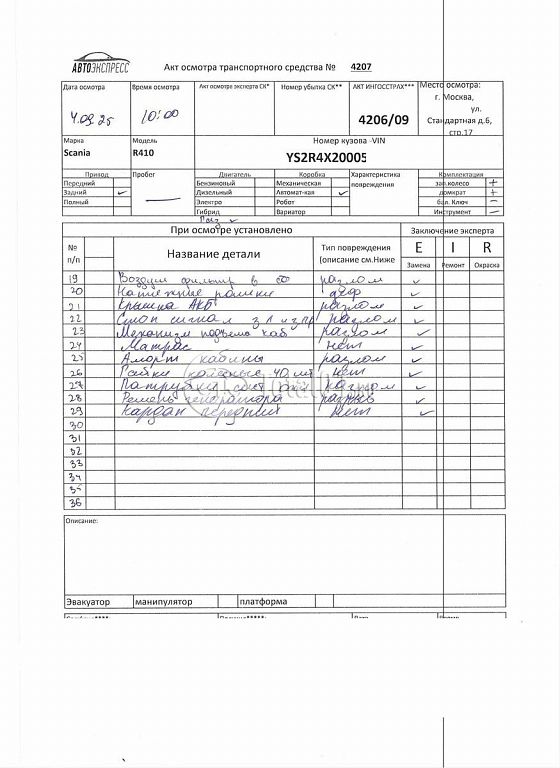 АВТОЭКСПРЕСС
Акт осмотра транспортного средства № 4207
Дата осмотра Время осмотра Акт осмотра эксперта СК* Номер убытка СК** АКТ ИНГОССТРАХ*** Место осмотра:
г. Москва,
ул.
Стандартная д.6,
стр.17
4.09.25 10:00 4206/09
Марка Модель Номер кузова -VIN
Scania R410 YS2R4X20005
Привод Пробег Двигатель Коробка Характеристика повреждения Комплектация
Передний Бензиновый Механическая зап.колесо +
Задний ✓ — Дизельный Автомат-кая ✓ домкрат +
Полный Электро Робот бал. Ключ —
Гибрид Вариатор Инструмент —
Газ ✓
При осмотре установлено Заключение эксперта
№ п/п Название детали Тип повреждения (описание см.Ниже E I R
Замена Ремонт Окраска
19 Воздуш фильтр в сб разлом ✓
20 Натяжные ролики деф ✓
21 Крышка АКБ разлом ✓
22 Стоп сигнал з л и з пр разлом ✓
23 Механизм подъема каб разлом ✓
24 Матрас нет ✓
25 Аморт кабины разлом ✓
26 Гайки колесные 40 шт нет ✓
27 Патрубки сист разлом ✓
28 Ремень генератора разрыв ✓
29 Кардан передний нет ✓
30
31
32
33
34
35
36
Описание:
Эвакуатор манипулятор платформа